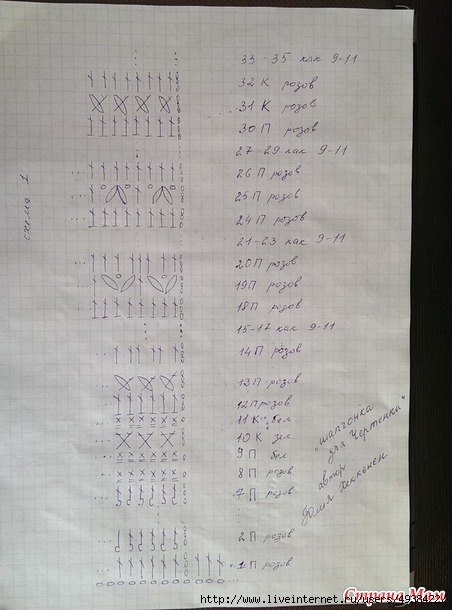 33-35 как 9-11
32 К розов
31 К розов
30 П розов
27-29 как 9-11
26 П розов
25 П розов
24 П розов
21-23 как 9-11
20 П розов
19 П розов
18 П розов
15-17 как 9-11
14 П розов
13 П розов
12 П розов
11 К бел
10 К зел
9 П бел
8 П розов
7 П розов
2 П розов
1 П розов
схема 1
"шапгонка
для Чертенка"
автор
Юлия Хикконен
Страна Мам
www.liveinternet.ru/users/4938422/